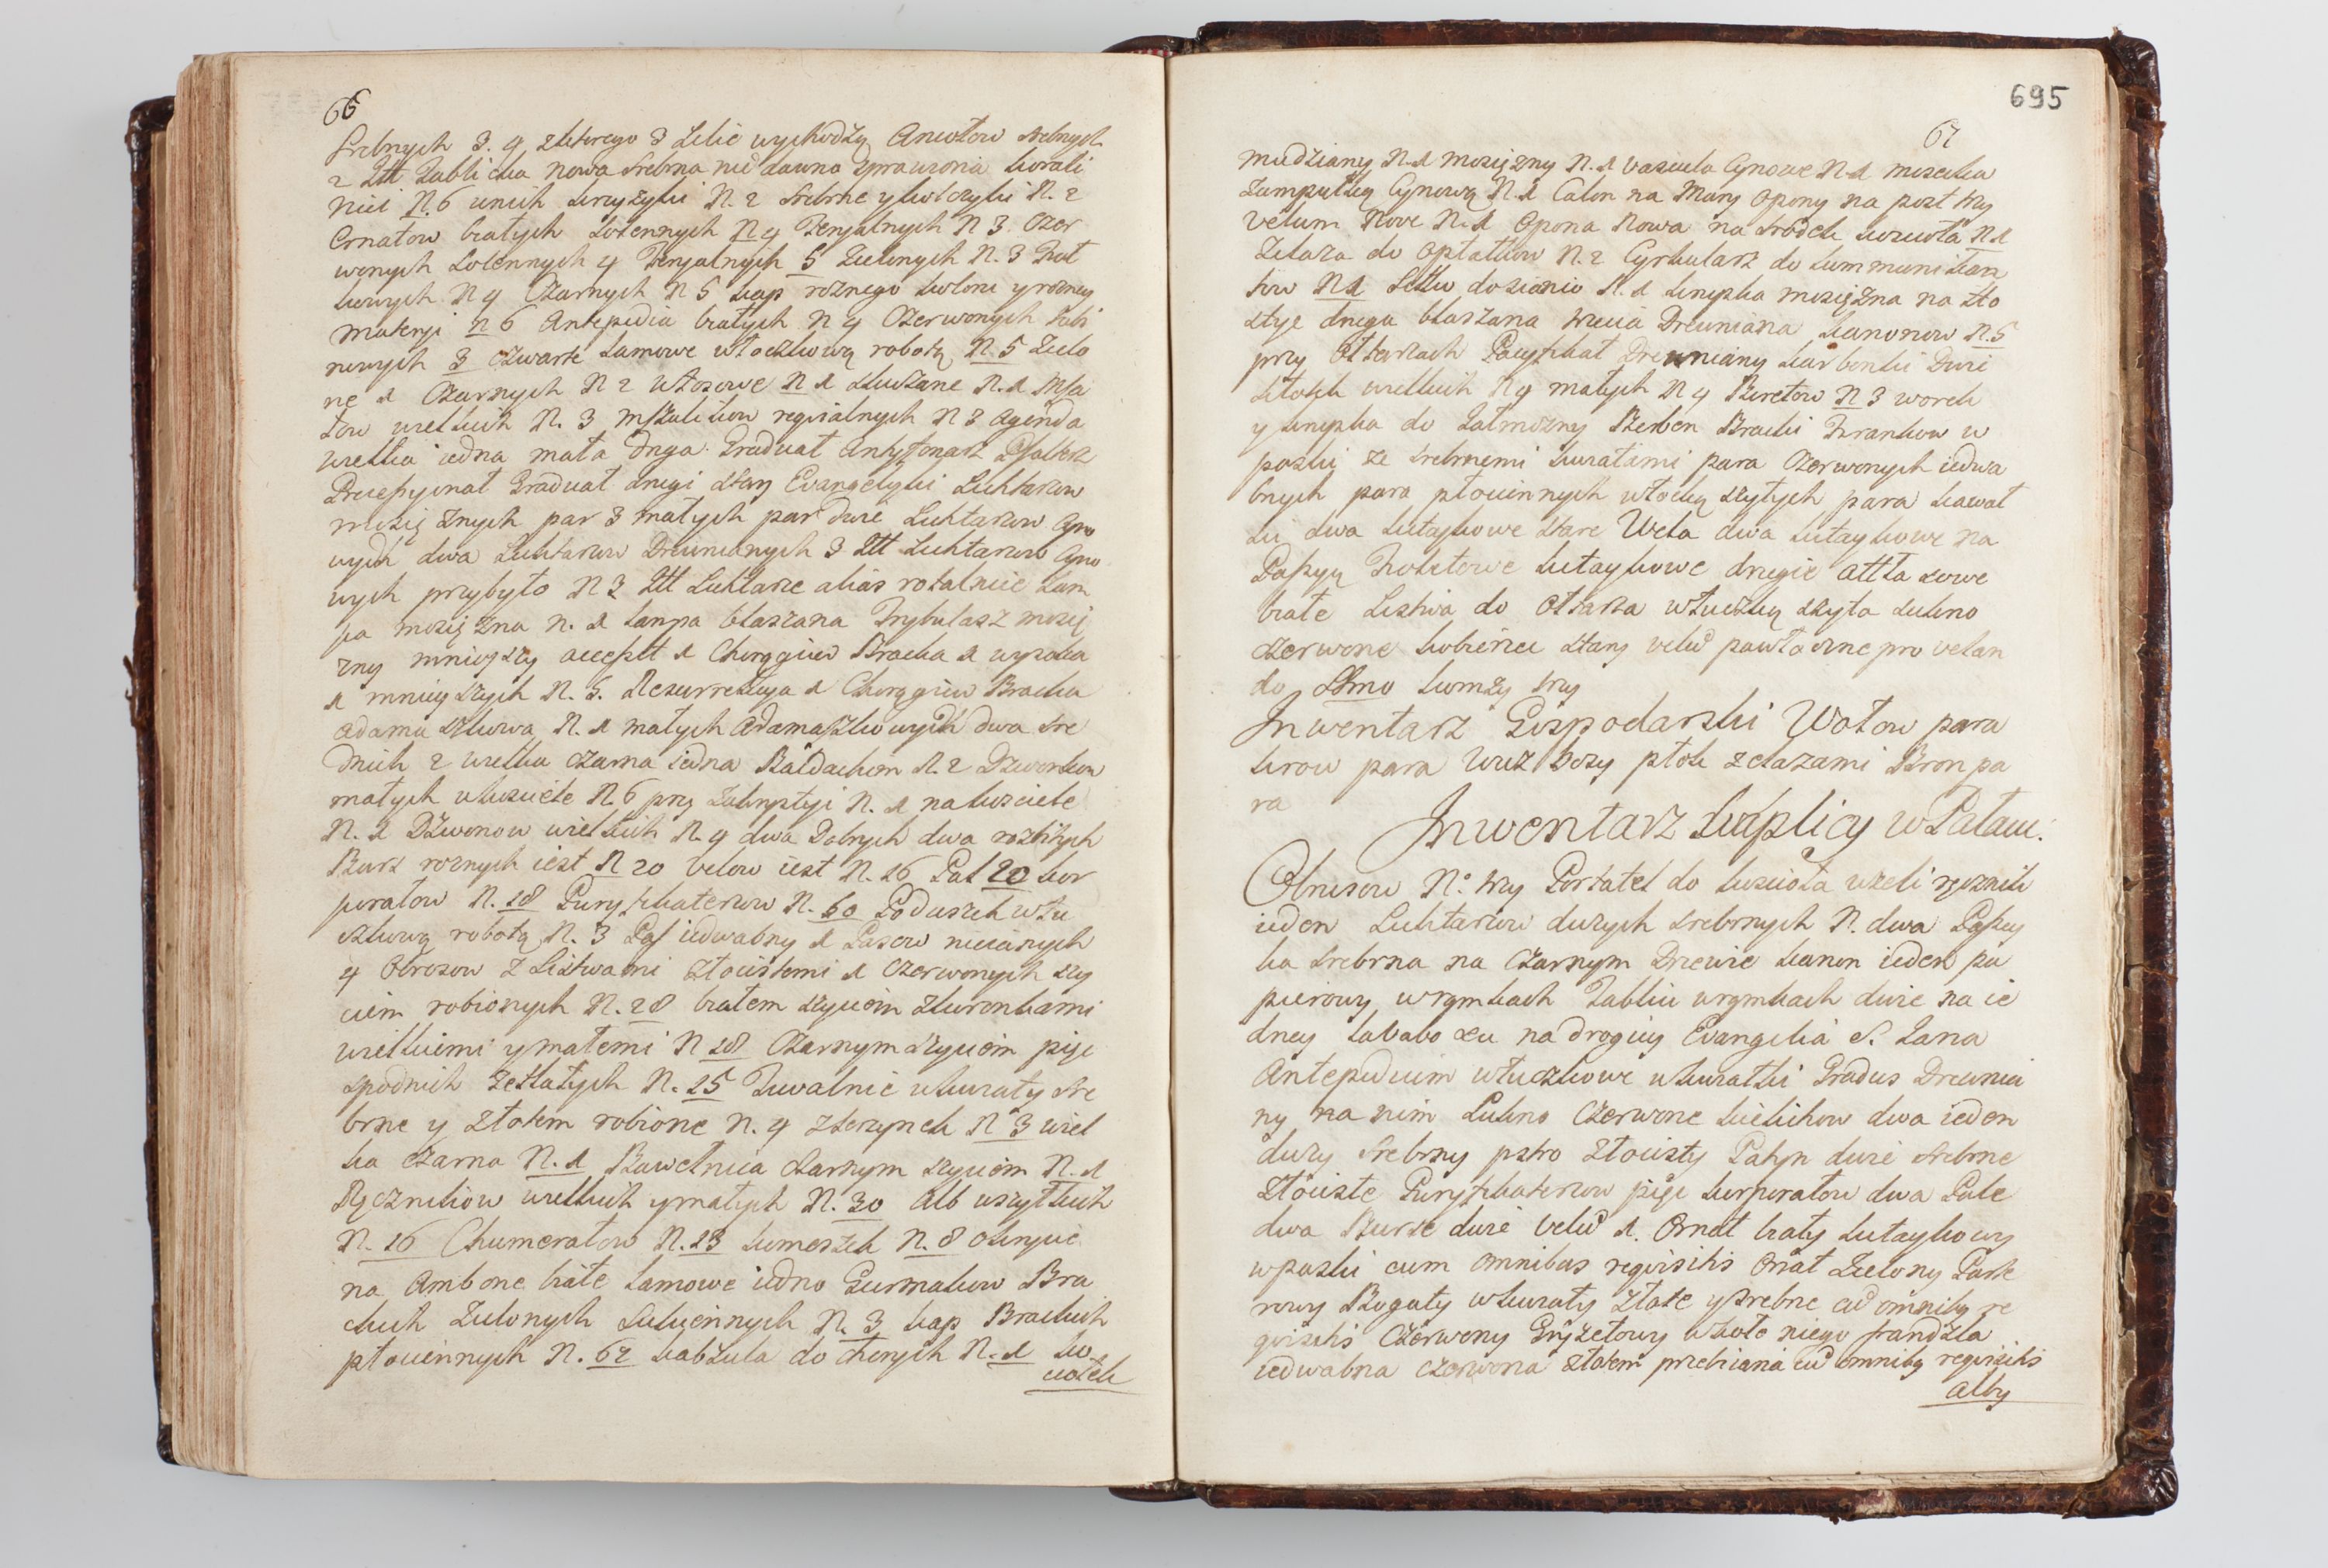 66
srebnych 3. 4 zktorego 3 Lelie wychodzą Aniołow srebnych
2 Itt Tablicka nowa srebrna nie dawna sprawiona korali
nici N. 6 unich krzyżyki N. 2 srebrne y kolczyki N. 2
Ornatow białych solennych N 4 Feryalnych N 3. Czer
wonych solennych 4 Feryalnych 5 Zielonych N. 3 Fiot
kowych N 4 Czarnych N 5 kap roznego koloru y rozney
materyi n 6 Antepedia białych N 4 Czerwonych
nowych 3 czwarte Lamowe włoczkową robotą N. 5 Zielo
ne 1 Czarnych N 2 włosowe N 1 N. 1 Msza
łow wielkich N. 3 mszalikow reqvialnych N 3 agenda
wielka iedna mała druga Graduał Antyfonarz Psalterz
Graduał drugi stary Evangeliyki Lichtarzow
mosię znych par 3 małych par dwie Lichtarzow Cyno
wych dwa Lichtarzow Drewnianych 3 Itt Lichtarzow Cyno
wych przybyło N 3 Itt Lichtarze alias rotalnice Lam
pa mosię zna n. 1 Lampa blaszana Trybularz mosię
zny mnieyszy 1 Chorągiew Bracka 1 wysoka
1 mnieyszych N. 5. Resurrekcya 1 Chorągiew Bracka
adama szkowa N. 1 małych adamaszkowych dwa sre
dnich 2 wielka czarna iedna Baldachim N. 2 Dzwonkow
małych wkosciele N. 6 przy Zakrystyi N. 1 nakosciele
N. 1 Dzwonow wielkich N. 4 dwa Dobrych dwa rozbitych
Burs roznych iest N 20 velow iest N. 16 Pal 20 kor
poratow N. 18 Puryfikaterzow N. 60 Poduszek włu
czkową robotą N. 3 Pas iedwabny 1 Pasow nicianych
4 Obrusow z Listwami złocistemi 1 czerwonych szy
ciem robionych N. 28 białem szyciem zkoronkami
wielkiemi y małemi N 18 Czarnym szyciem pięć
spodnich zetłałych N. 25 Tuwalnie wkwiaty sre
brne y złotem robione n. 4 N 3 wiel
ka czarna N. 1 Bawełnica czarnym szyciem N. 1
Ręcznikow wielkich y małych N. 30 Alb wszytkich
N. 16 Chumerałow N. 13 komeszek N. 8 okrycie
na Ambone białe Lamowe iedno Gurmakow Bra
ckich Zielonych Sukiennych N. 3 kap Brackich
płociennych N. 62 kabzula do chorych N. 1 ko
ciołek
695
67
miedziany N. 1 mosiężny N. 1 vascula Cynowe N. 1 miseczka
zampułką Cynową N. 1 Całon na Mary opony na post trzy
velum Nove N. 1 Opona Nowa na srodek koscioła N 1
Zelaza do opłatkow N. 2 Cyrkularz do kommunikan
tow N 1 N. 1 kropka mosiężna na Zło
styę druga blaszana trzecia Drewniana kanonow N. 5
przy Ołtarzach Pacyfikał Drewniany karbonki Dwie
Stołk wielkich N 4 małych N 4 Biretow N 3 worek
y kropka do Jałmuzny Bęben Bracki Firankow w
paski ze srebrnemi kwiatami para Czerwonych iedwa
bnych para płociennych włoczką szytych para kawał
ki dwa kitaykowe stare Wela dwa kitaykowe na
Passyą Fioletowe kitaykowe drugie attła sowe
białe Listwa do Ołtarza włuczką szyta sukno
czerwone kobierzec stary velũ pawłoczne pro velan
do SSmo komży trzy
Inwentarz Gospodarski Wołow para
krow para Wuz bosy pług zelazami Bron pa
ra
Inwentarz kaplicy w Pałacu.
Obrusow N° trzy Portatel do koscioła wzeli ręcznik
ieden Lichtarzow duzych srebrnych N. dwa Passy
ka srebrna na Czarnym Drzewie kanon ieden pa
pierowy wrąmkach Tablic wrąmkach dwie na ie
dney Lavabo &cu nadrogiey Evangelia S. Jana
Antepedium włuczkowe wkwiatki Gradus Drewnia
ny na nim Sukno Czerwone kielichow dwa ieden
duzy srebrny pstro złocisty Patyn dwie srebrne
złociste Puryfikaterzow pięć korporałow dwa Pale
dwa Burse dwie velũ 1. Ornat biały kitaykowy
wpaski cum omnibus reqvisitis Ornat Zielony
rowy Bogaty wkwiaty złote y srebrne cũ omnibq re
qvisitis Czerwony Gryzetowy wkoło niego frandzla
iedwabna czerwona złotem przebiana cũ omnibq reqvisitis
Alby